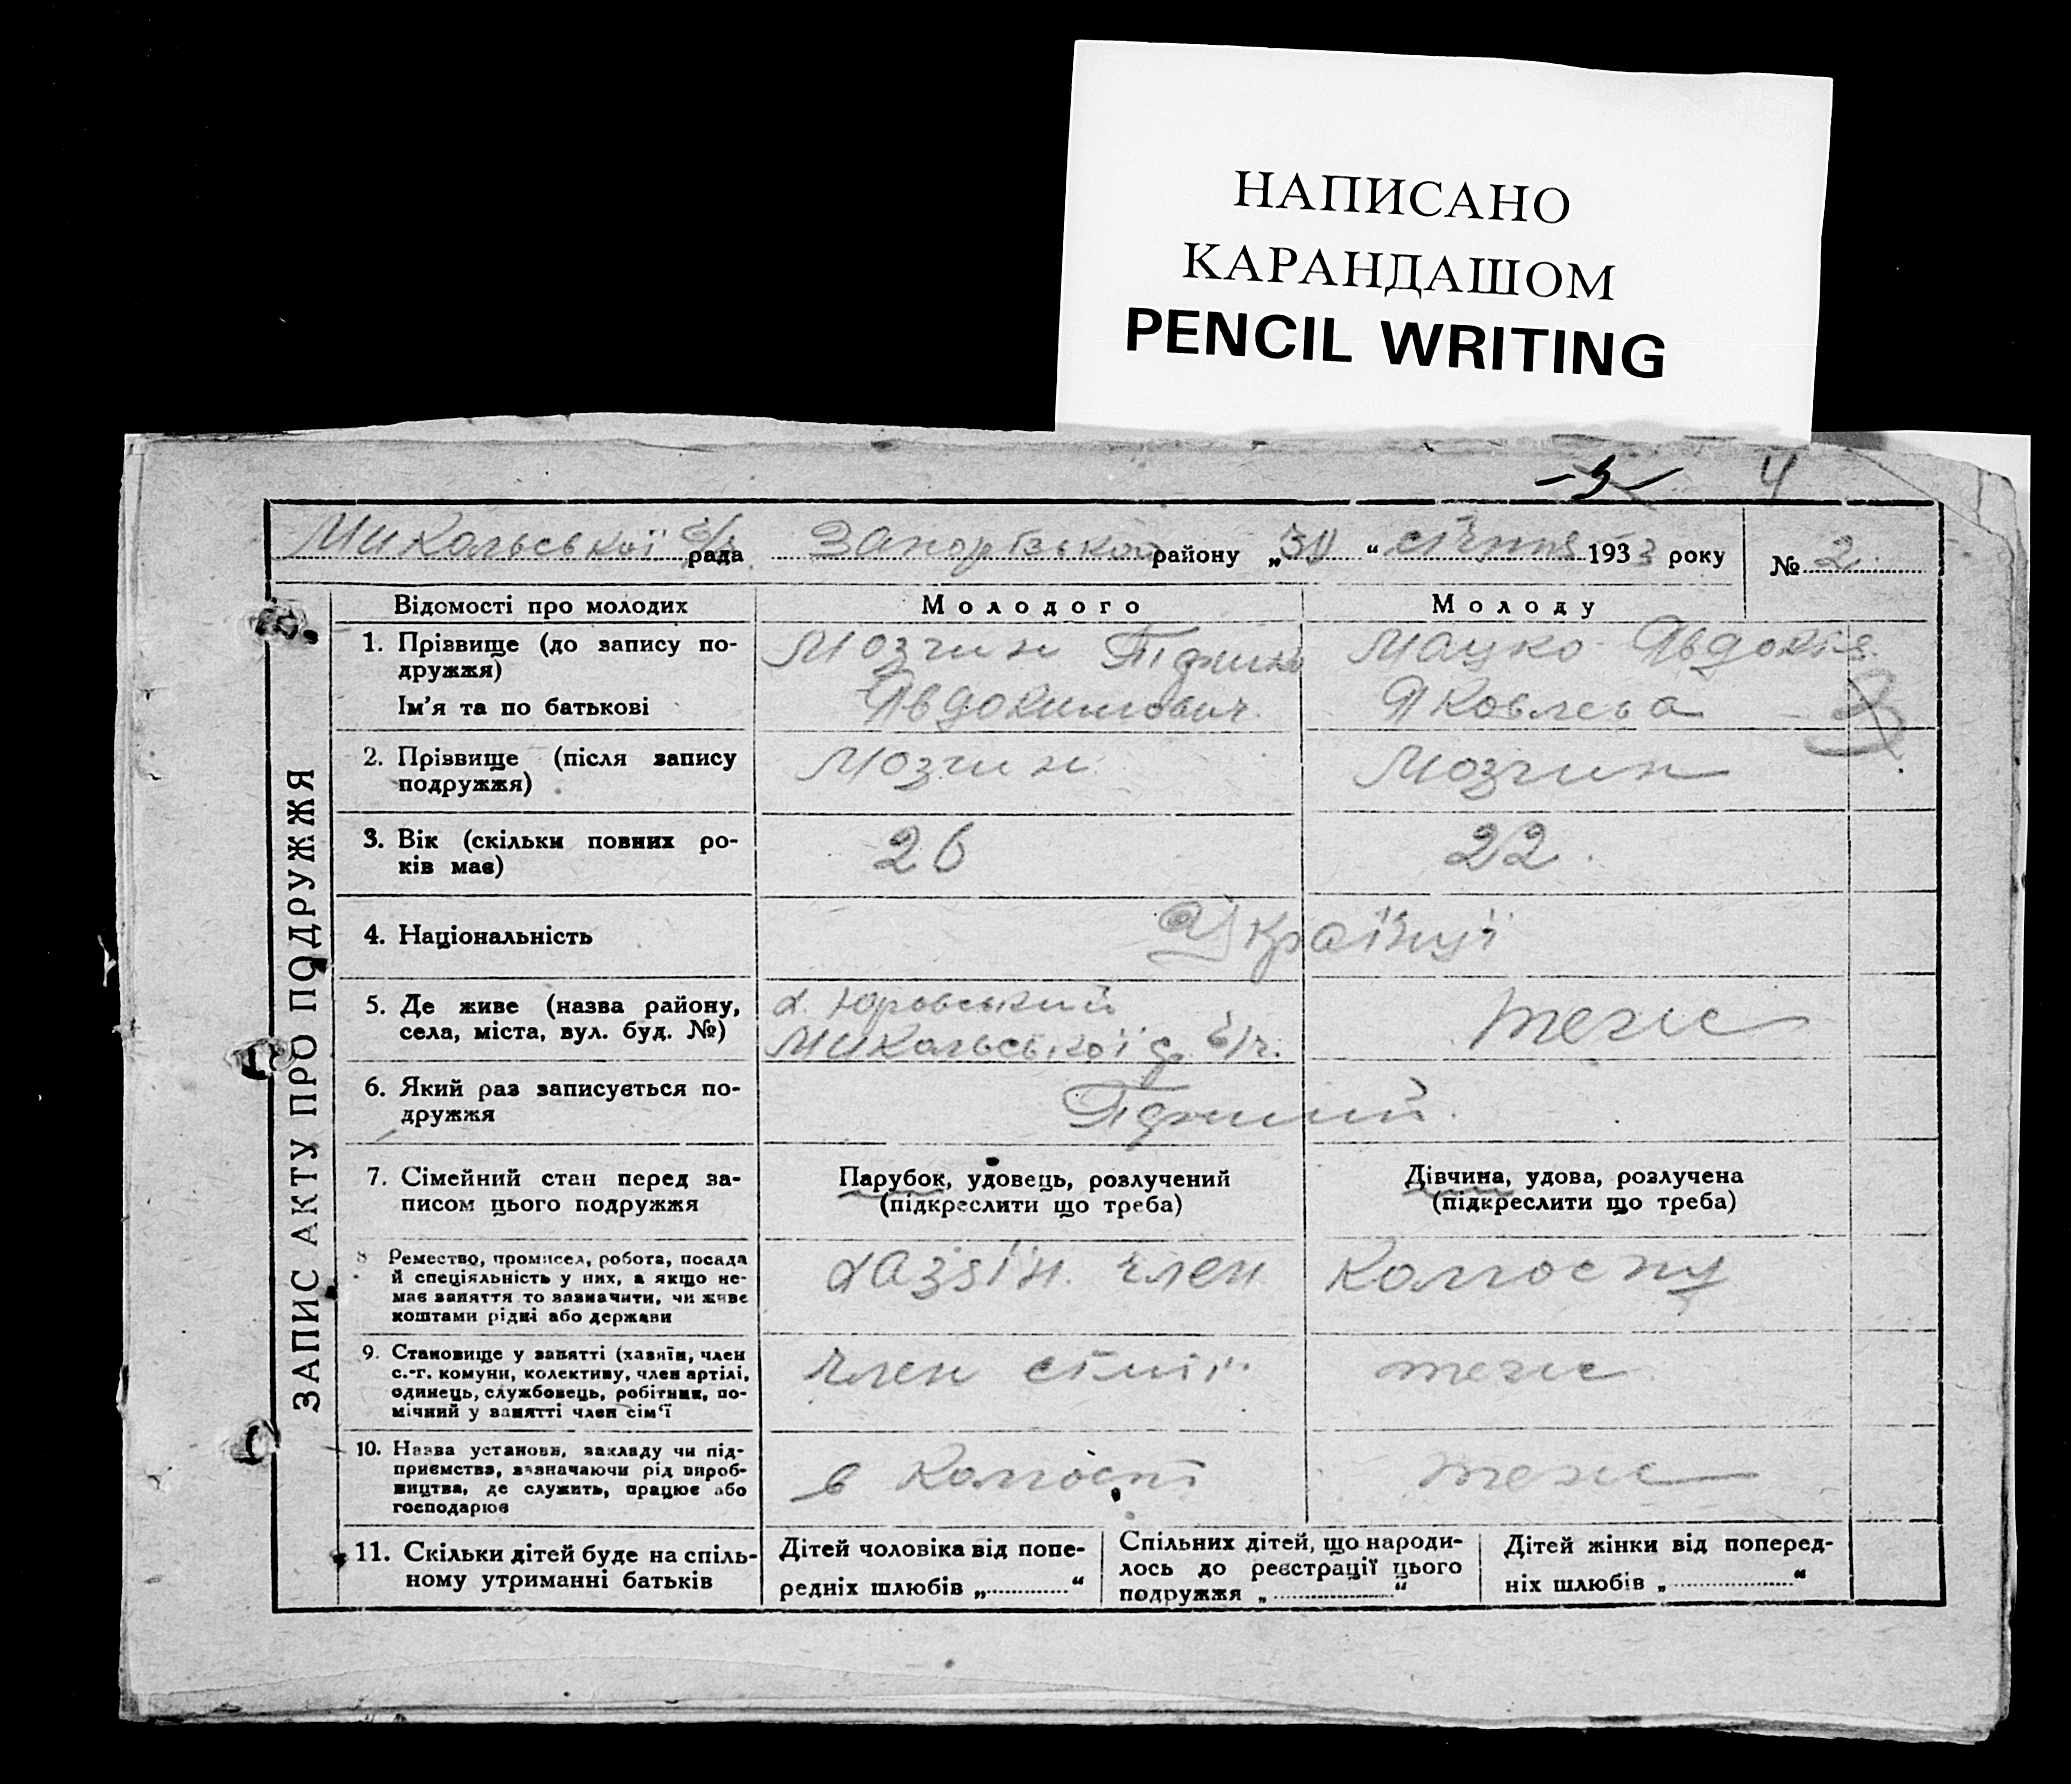 НАПИСАНО
КАРАНДАШОМ
PENCIL WRITING
4
Микольської с/р рада Запорізької району „30“ січня 1933 року № 2
ЗАПИС АКТУ ПРО ПОДРУЖЖЯ
Відомості про молодих Молодого Молоду
1. Прізвище (до запису по- Мозгин Мацко Явдокія
дружжя) Явдокимович Яковлева
Ім'я та по батькові
2. Прізвище (після запису Мозгин Мозгин
подружжя)
3. Вік (скільки повних ро- 26 22.
ків має)
4. Національність Українці
5. Де живе (назва району, х. Юровський теж
села, міста, вул. буд. №) Микольської с/р.
6. Який раз записується по-
дружжя
7. Сімейний стан перед за- Парубок, удовець, розлучений Дівчина, удова, розлучена
писом цього подружжя (підкреслити що треба) (підкреслити що треба)
8 Ремество, промисел, робота, посада хазяїн. член колгоспу
й спеціяльність у них, а якщо не-
має заняття то зазначити, чи живе
коштами рідні або держави
9. Становище у занятті (хазяїн, член член сімї теж
с.-г. комуни, колективу, член артілі,
одинець, службовець, робітник, по-
мічний у занятті член сім'ї
10. Назва установи, закладу чи під- в колгоспі теж
приємства, зазначаючи рід вироб-
ництва, де служить, працює або
господарює
11. Скільки дітей буде на спіль- Дітей чоловіка від попе- Спільних дітей, що народи- Дітей жінки від поперед-
ному утриманні батьків редніх шлюбів „ “ лось до реєстрації цього ніх шлюбів „ “
подружжя „ “